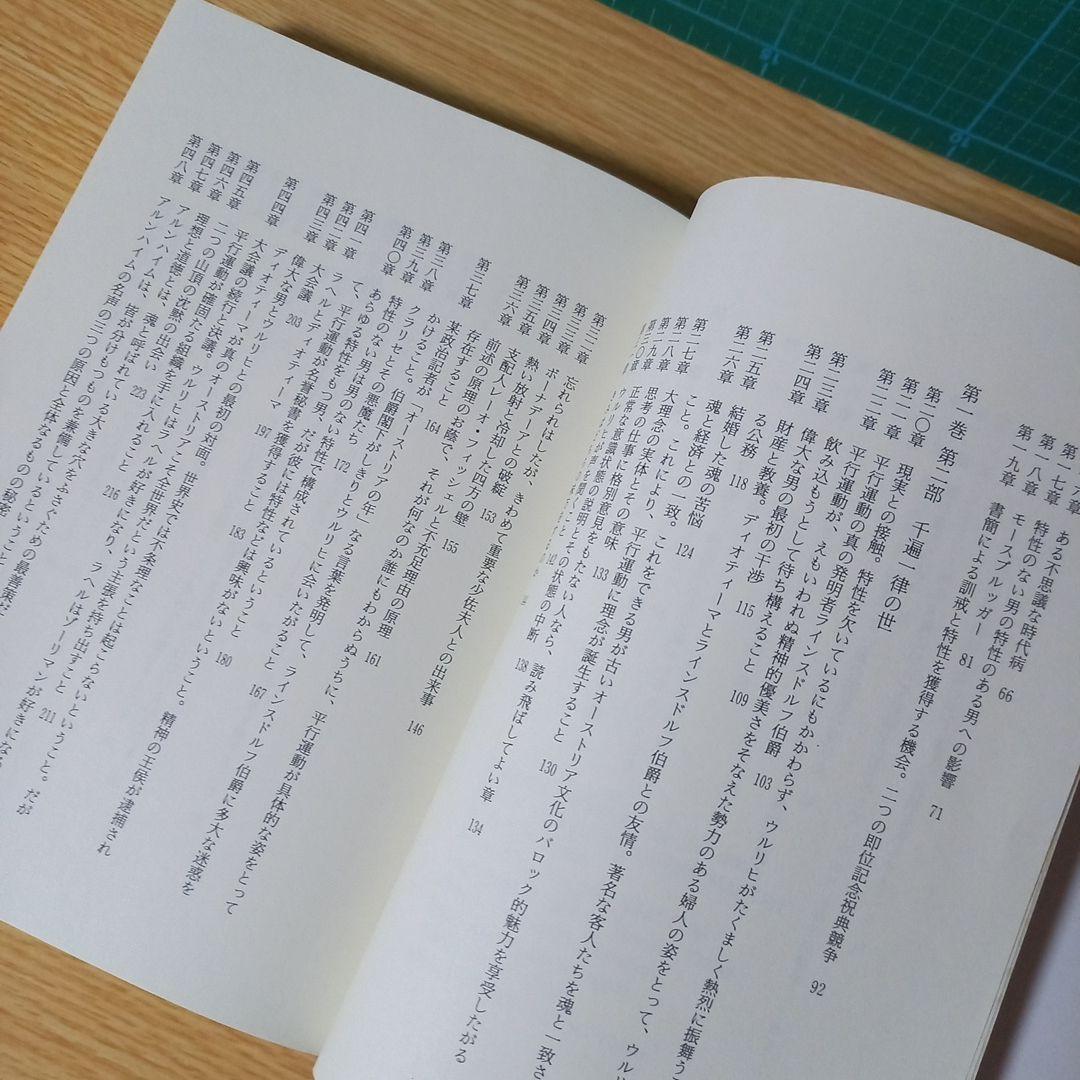 六章 ある不思議な時代病 66
一七章 特性のない男の特性のある男への影響 71
第一八章 モースブルッガー 81
第一九章 書簡による訓戒と特性を獲得する機会。二つの即位記念祝典競争 92
第一巻 第二部 千遍一律の世
第二〇章 現実との接触。特性を欠いているにもかかわらず、ウルリヒがたくましく熱烈に振舞う
第二一章 平行運動の真の発明者ラインスドルフ伯爵 103
第二二章 平行運動が、えもいわれぬ精神的優美さをそなえた勢力のある婦人の姿をとって、ウルリ
飲み込もうとして待ち構えること 109
第二三章 偉大な男の最初の干渉 115
第二四章 財産と教養。ディオティーマとラインスドルフ伯爵との友情。著名な客人たちを魂と一致さ
る公務 118
第二五章 結婚した魂の苦悩 124
第二六章 魂と経済との一致。これをできる男が古いオーストリア文化のバロック的魅力を享受したがる
こと。これにより、平行運動に理念が誕生すること 130
第二七章 大理念の実体とその意味 133
第二八章 思考の仕事に格別意見をもたない人なら、読み飛ばしてよい章 134
第二九章 正常な意識状態の説明とその状態の中断 138
第三〇章 ウルリヒが声を聞くこと 142
第三二章 忘れられはしたが、きわめて重要な少佐夫人との出来事 146
第三三章 ボーナデーアとの破綻 153
第三四章 熱い放射と冷却した四方の壁 155
第三五章 支配人レーオ・フィッシェルと不充足理由の原理 161
第三六章 前述の原理のお蔭で、それが何なのか誰にもわからぬうちに、平行運動が具体的な姿をとって
存在すること 164
第三七章 某政治記者が「オーストリアの年」なる言葉を発明して、ラインスドルフ伯爵に多大な迷惑を
かけること。伯爵閣下がしきりとウルリヒに会いたがること 167
第三八章 クラリセとその悪魔たち 172
第三九章 特性のない男は男のない特性で構成されているということ 180
第四〇章 あらゆる特性をもつ男、だが彼には特性などは興味がないということ。精神の王侯が逮捕され
て、平行運動が名誉秘書を獲得すること 183
第四一章 ラヘルとディオティーマ 197
第四二章 大会議 203
第四三章 偉大な男とウルリヒとの最初の対面。世界史では不条理なことは起こらないということ。だが
平行運動が真のオーストリアこそ全世界だという主張を持ち出すこと 211
第四四章 大会議の続行と決議。ウルリヒはラヘルが好きになり、ラヘルはゾーリマンが好きになる
平行運動が確固たる組織を手に入れること 216
第四五章 二つの山頂の沈黙の出会い 223
第四六章 理想と道徳とは、魂と呼ばれている大きな穴をふさぐための最善策
第四七章 アルンハイムは、皆が分けもつものを兼備しているということ
第四八章 アルンハイムの名声の三つの原因と全体なるものの秘密